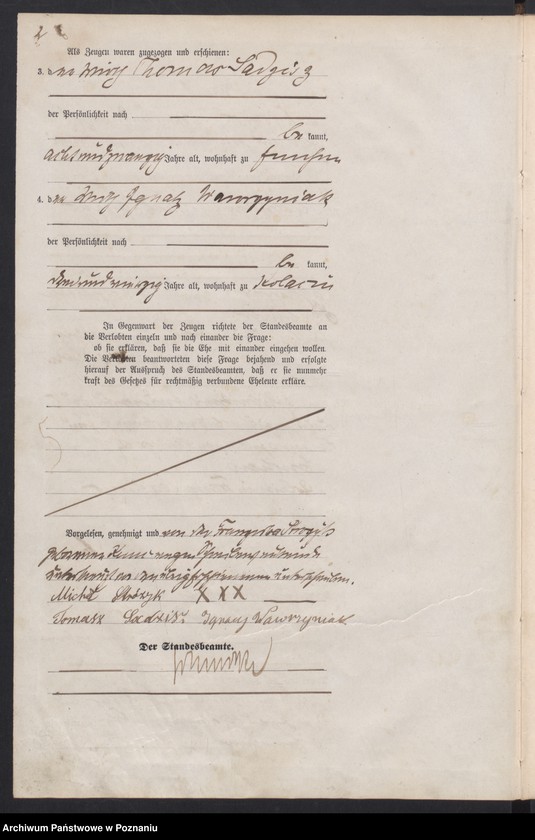 2
Als Zeugen waren zugezogen und erschienen:
3. der Wirth Thomas Sadzisz
der Persönlichkeit nach
be kannt,
achtundzwanzig Jahre alt, wohnhaft zu
4. der Wirth Ignatz Wawrzyniak
der Persönlichkeit nach
be kannt,
Jahre alt, wohnhaft zu
In Gegenwart der Zeugen richtete der Standesbeamte an
die Verlobten einzeln und nach einander die Frage:
ob sie erklären, daß sie die Ehe mit einander eingehen wollen.
Die Verlobten beantworteten diese Frage bejahend und erfolgte
hierauf der Ausspruch des Standesbeamten, daß er sie nunmehr
kraft des Gesetzes für rechtmäßig verbundene Eheleute erkläre.
Vorgelesen, genehmigt und von der Franziska
geborenen
unterschrieben.
Michał XXX
Tomasz Sadzisz Ignacy Wawrzyniak
Der Standesbeamte.
Archiwum Państwowe w Poznaniu